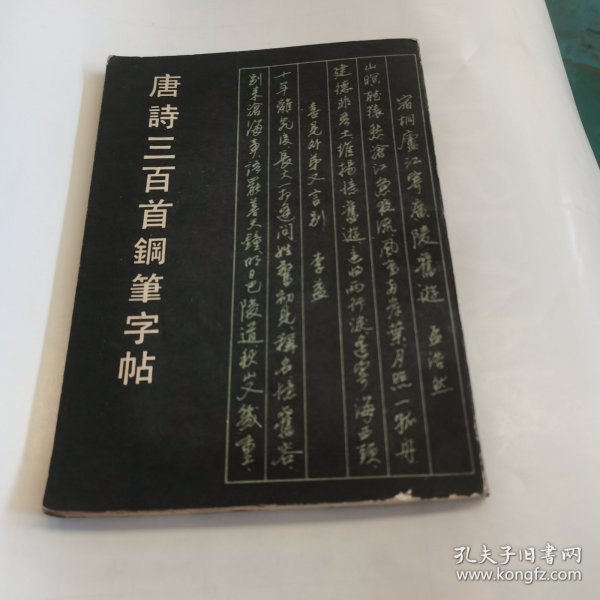 唐詩三百首鋼筆字帖
宿桐廬江寄廣陵舊遊 孟浩然
山暝聽猿愁滄江急夜流風鳴兩岸葉月照一孤舟
建德非吾土維揚憶舊遊還將兩行淚遙寄海西頭
喜見外弟又言別 李益
十年離亂後長大一相逢問姓驚初見稱名憶舊容
別來滄海事語罷暮天鐘明日巴陵道秋山又幾重
孔夫子旧书网
www.kongfz.com